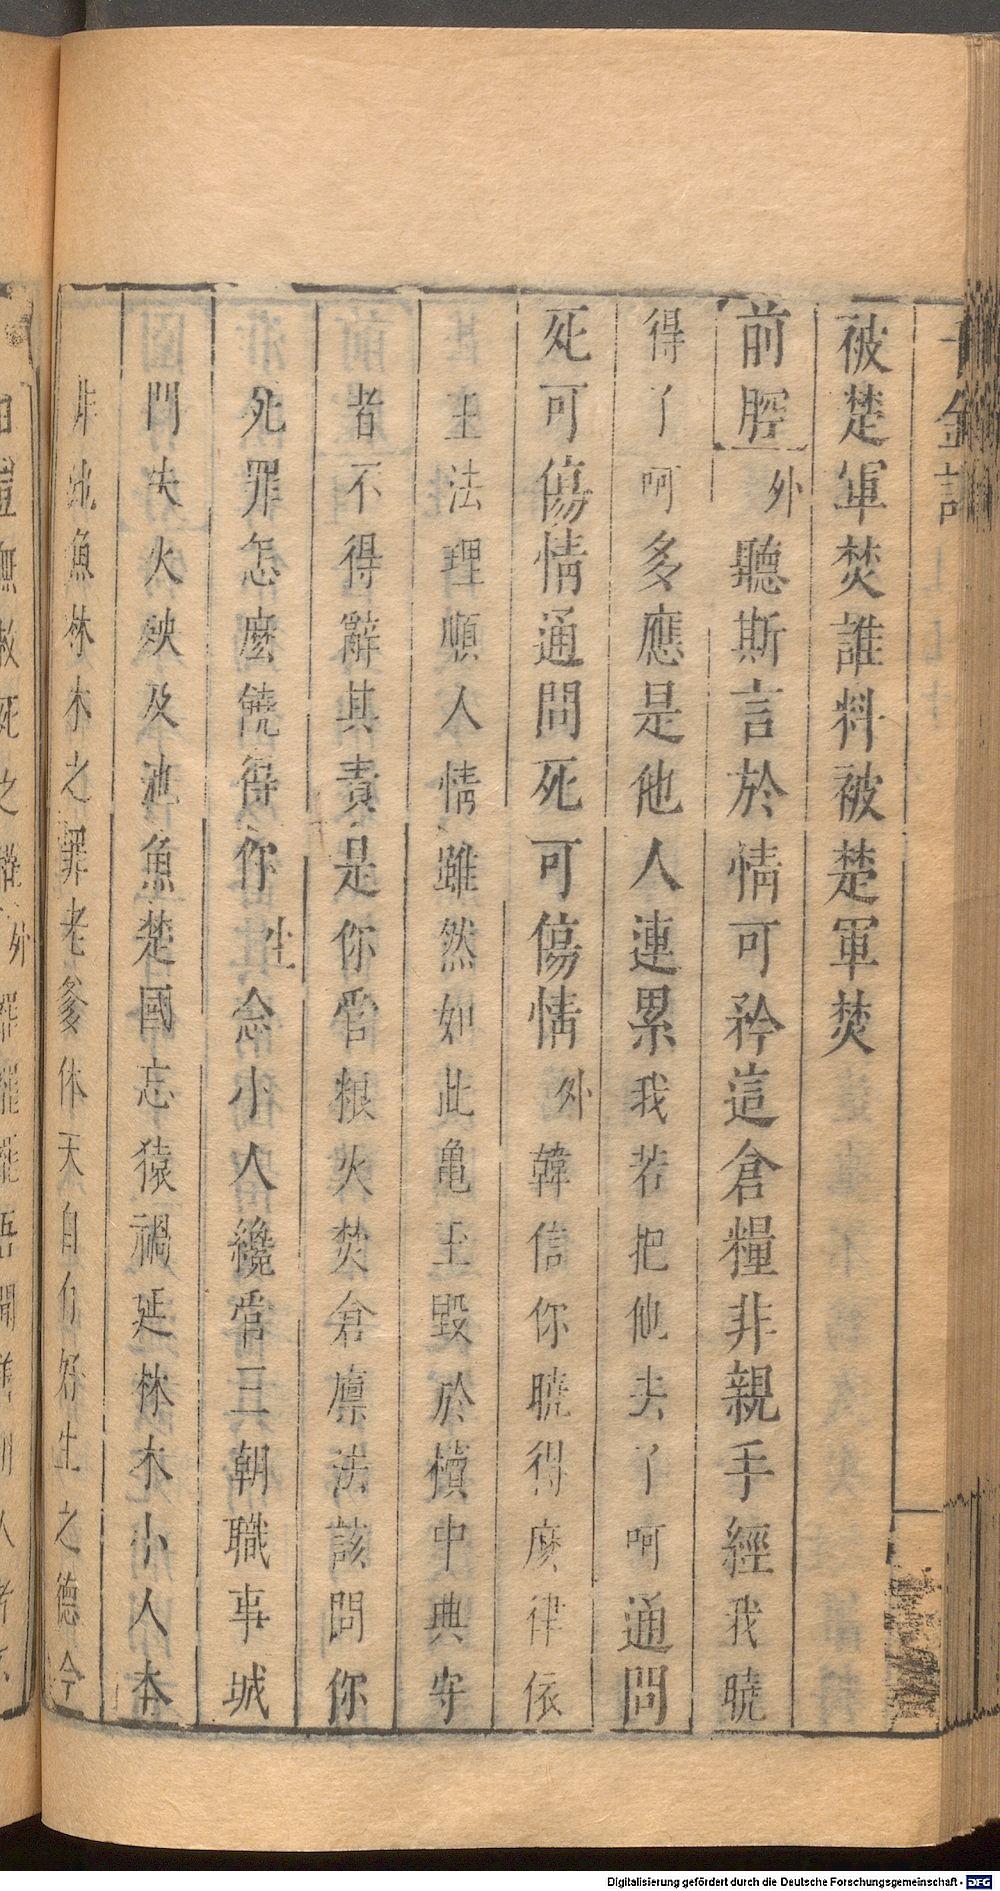 千金記
被楚軍焚誰料被楚軍焚
前腔 外 聽斯言於情可矜這倉糧非親手經我曉
得了呵多應是他人連累我若把他夫了呵通問
死可傷情通問死可傷情 外 韓信你曉得麼律依
王法理順人情雖然如此龜玉毀於櫝中典守
者不得辭其責是你管糧火焚倉廩法該問你
死罪怎麼饒得你 生 念小人纔當三朝職事城
門失火殃及池魚楚國忘猿禍延林木小人本
非池魚林木之罪老爹休天自有好生之德今
Digitalisierung gefördert durch die Deutsche Forschungsgemeinschaft - DFG